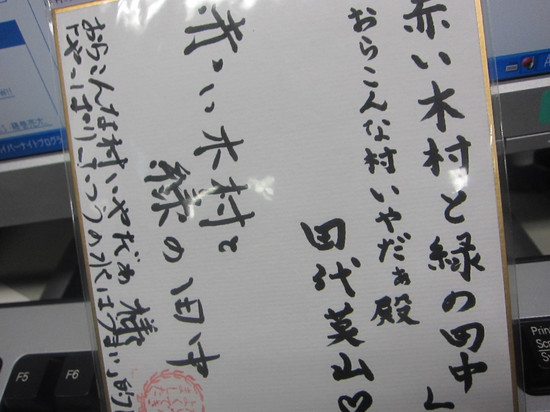 赤い木村と緑の田中
おらこんな村いやだぁ殿
田代英山♡
赤い木村と
緑の田中
おらこんな村いやだぁ様
Prin
Scr
Sy
F5
F6